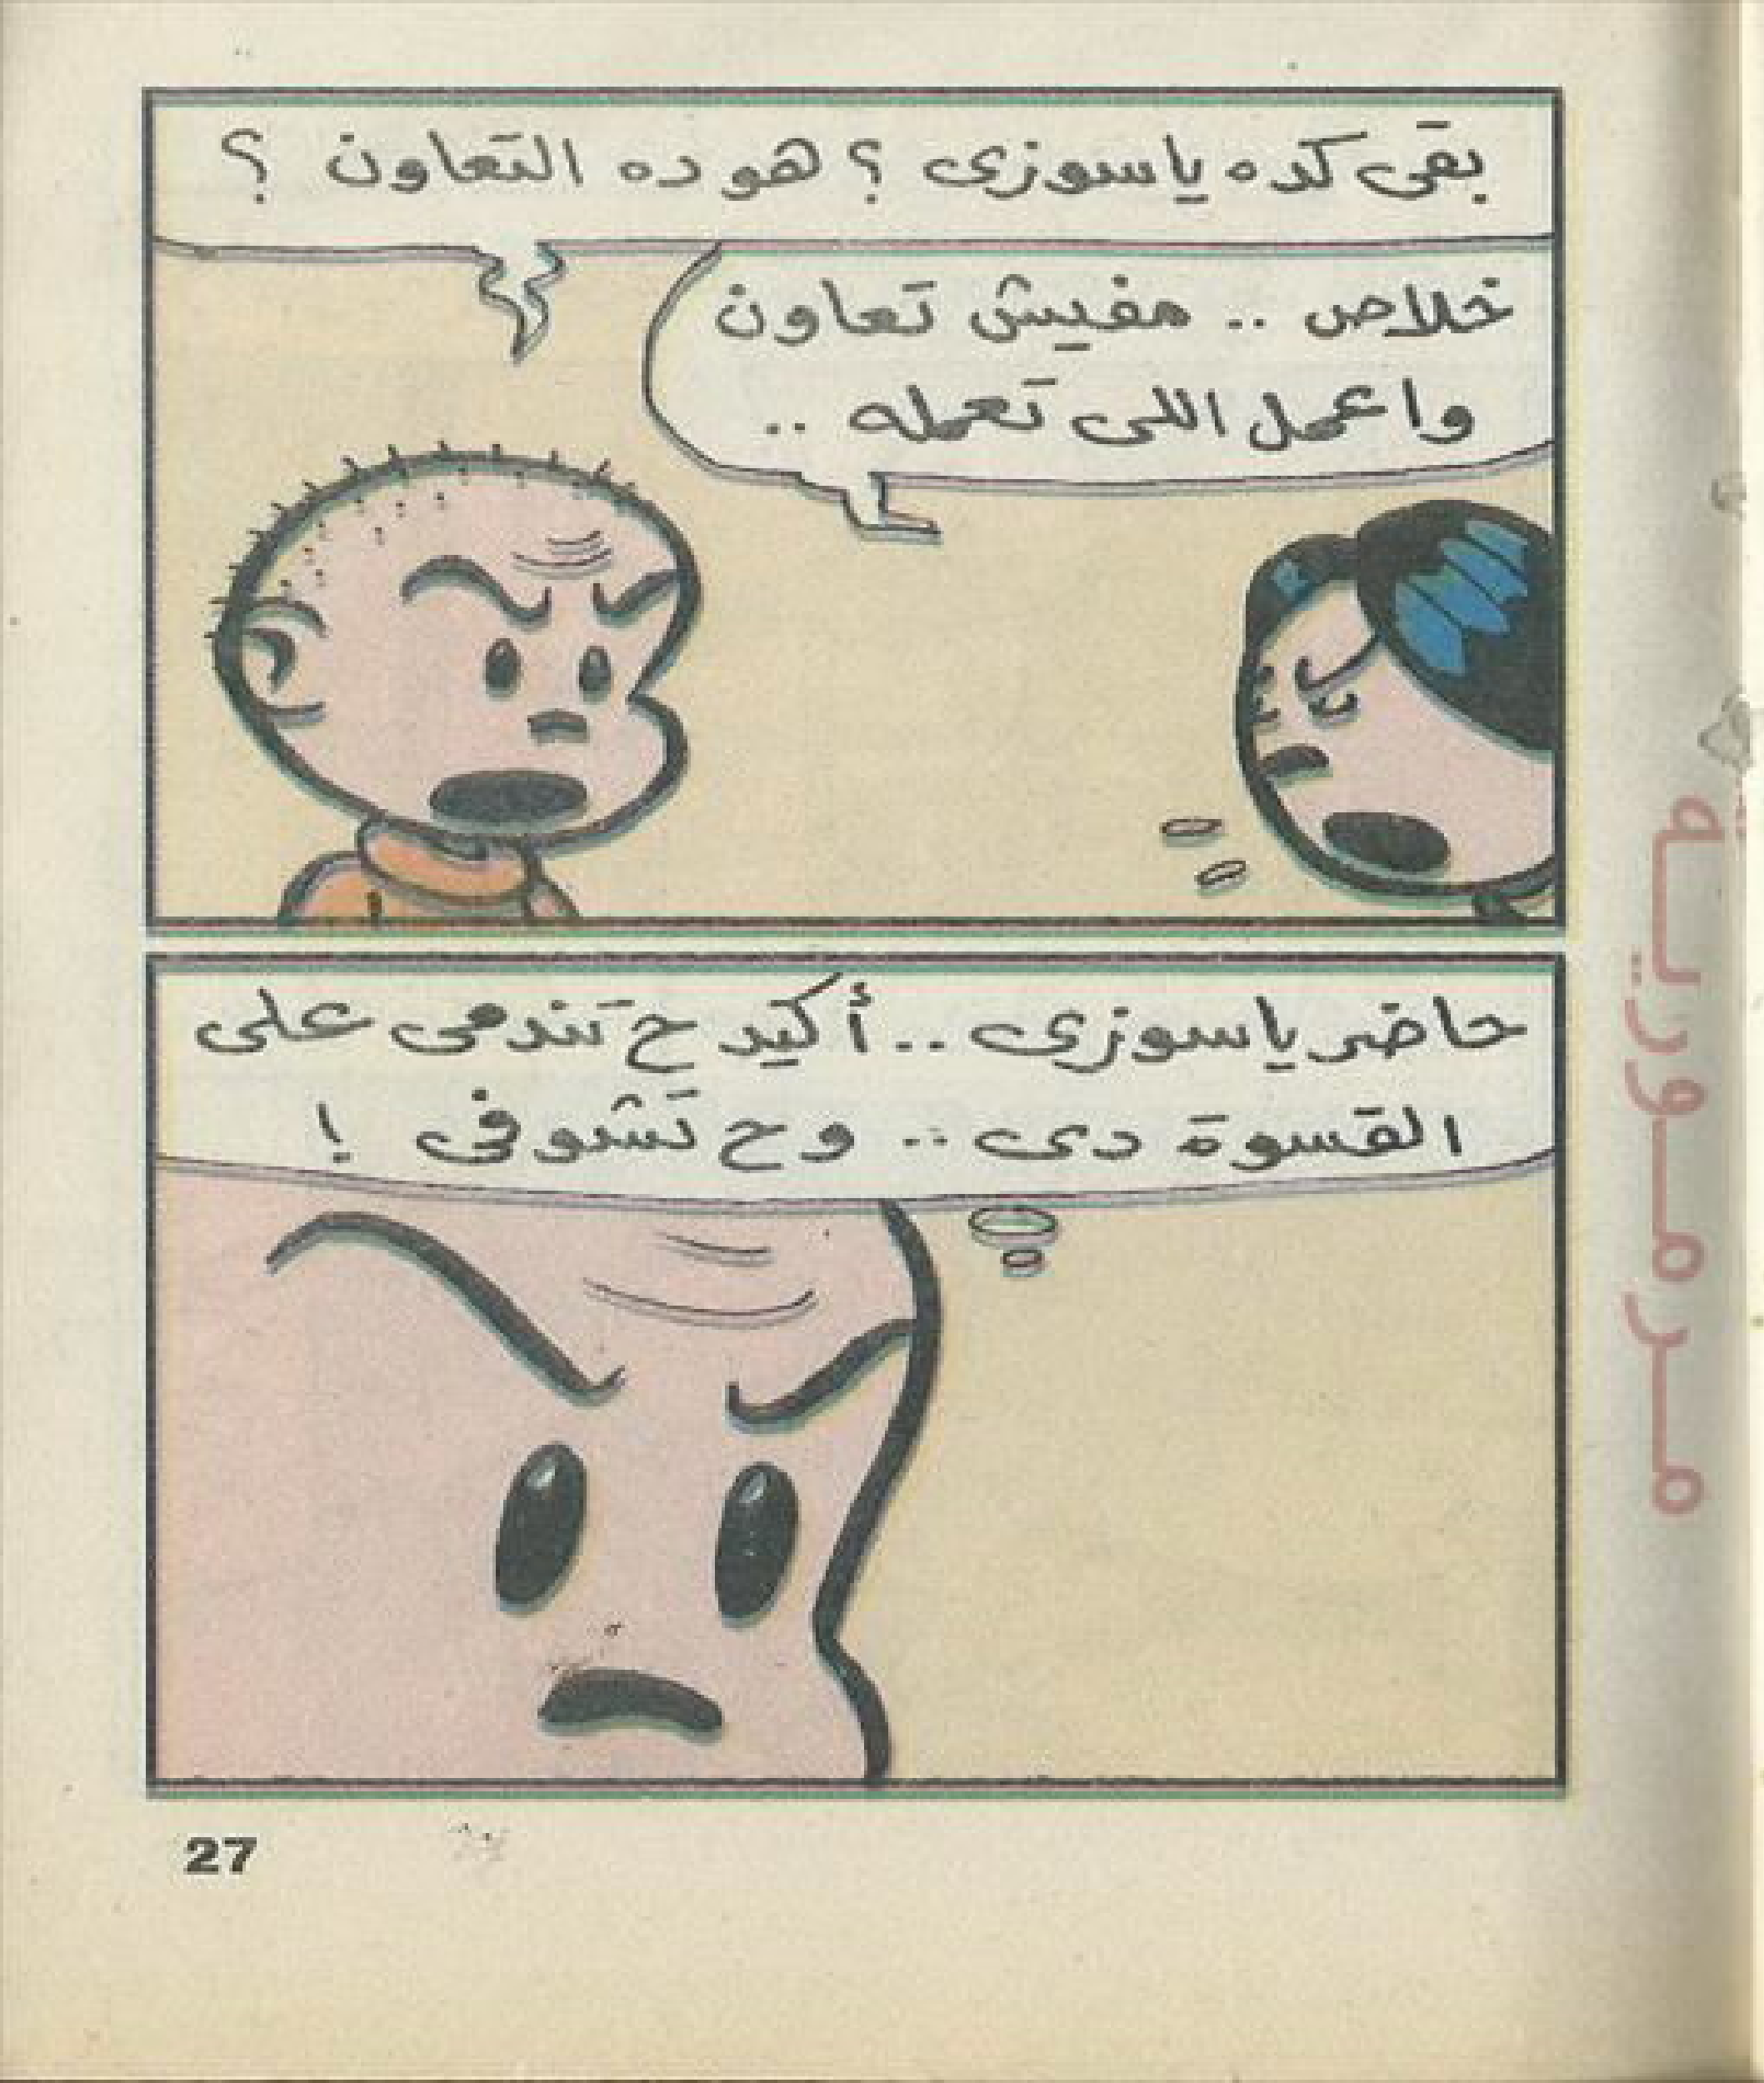 بقى كده ياسوزى ؟ هو ده التعاون ؟
خلاص .. مفيش تعاون
واعمل اللى تعمله ..
حاضر ياسوزى .. أكيد ح تندمى على
القسوة دى .. وح تشوفى !
27
مرمورية